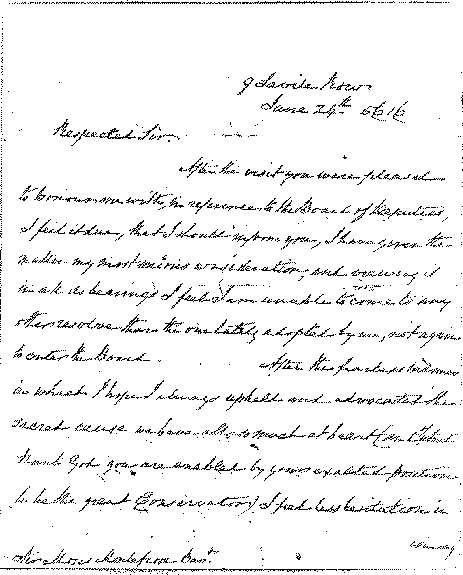 9 Savile Row
June 24th 5616
Respected Sir,
After the visit you were pleased
to honour me with, in reference to the Board of Deputies,
I feel it due, that I should inform you, I have given the
matter my most serious consideration, and viewing it
in all its bearings I feel I am unable to come to any
other resolve than the one lately adopted by me, not again
to enter the Board. After the fearless manner
in which I hope I always upheld and advocated the
sacred cause we have also so much at heart (and
thank God you are enabled by your exalted position
to be the great Conservator) I feel less hesitation in
Sir Moses Montefiore Bart.